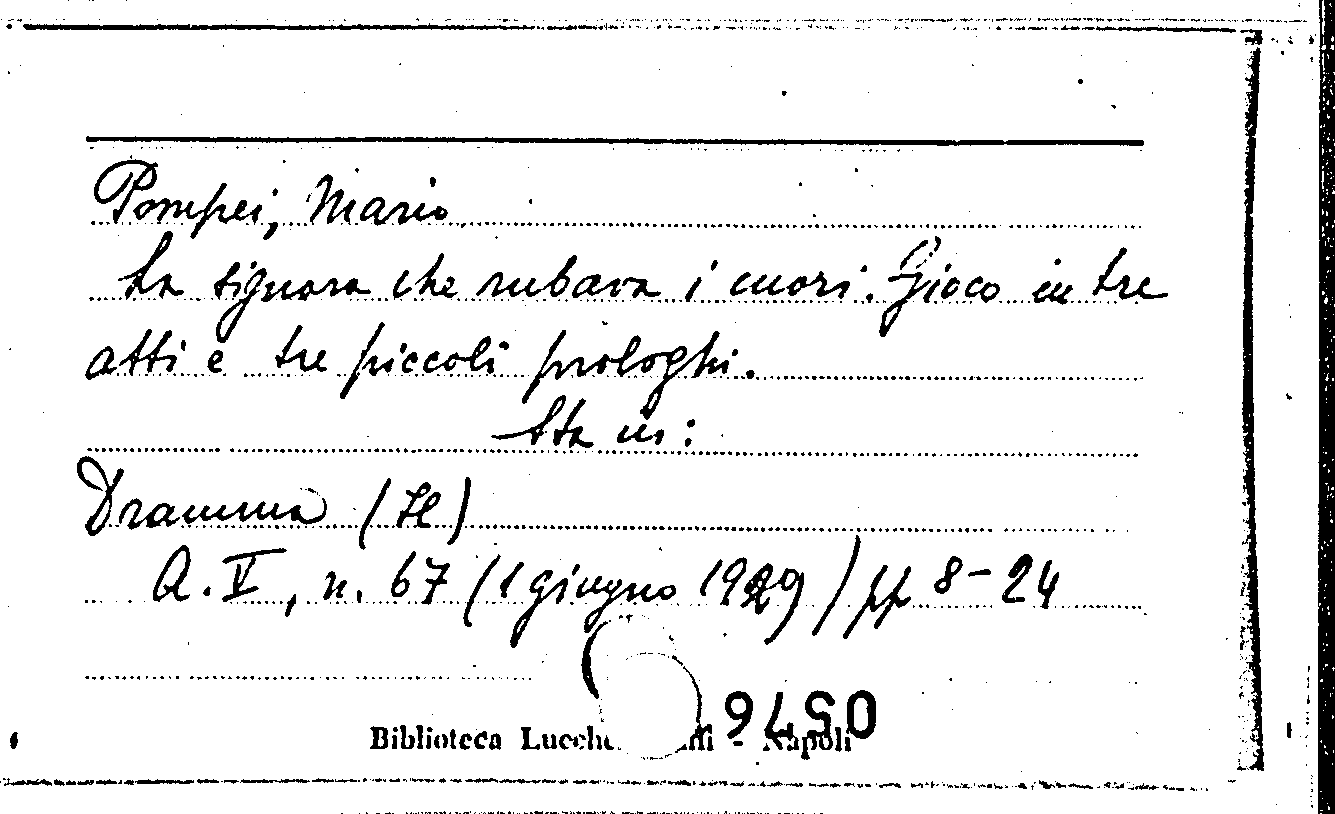 Pompei, Mario
La signora che rubava i cuori. Gioco in tre
atti e tre piccoli prologhi.
Sta in:
Dramma (Il)
A. V, n. 67 (1 giugno 1929) pp 8-24
0576
Biblioteca - Napoli